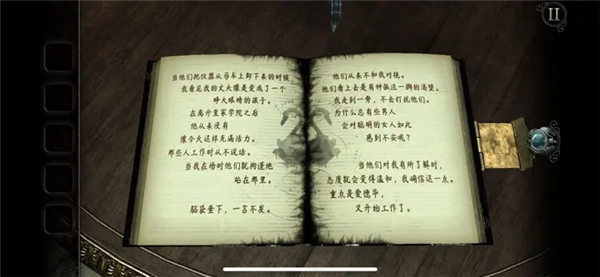 当他们把仪器从马车上卸下来的时候,
我看见我的丈夫像是变成了一个
睁大眼睛的孩子。
在离开皇家学院之后
他从来没有
像今天这样充满活力。
那些人工作时从不说话。
当我在场时他们就拘谨地
站在那里。
脑袋垂下,一言不发。
他们从来不和我对视。
他们看上去是有种振过一掷的渴望。
我走到一旁,不去打扰他们。
为什么总有些男人
会对聪明的女人如此
感到不安呢?
当他们对我有所了解时,
态度就会变得温和,我确信这一点。
重点是爱德华,
又开始工作了。